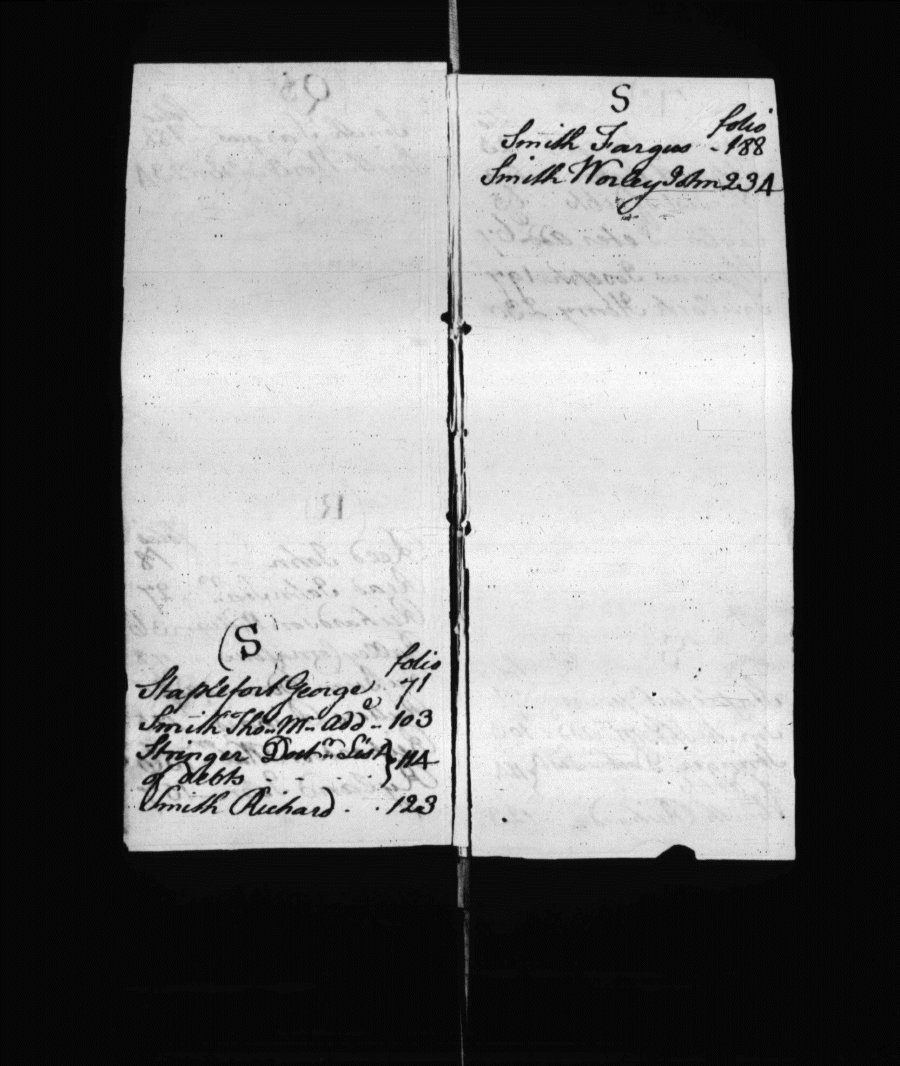 (S
folio
Staplefort George 71
Smith Thos. Wm. Add.o - 103
Stringer Doctn. List } 114
of debts - - -
Smith Richard - . 123
S
folio
Smith Fargus - 188
Smith Worley John 234